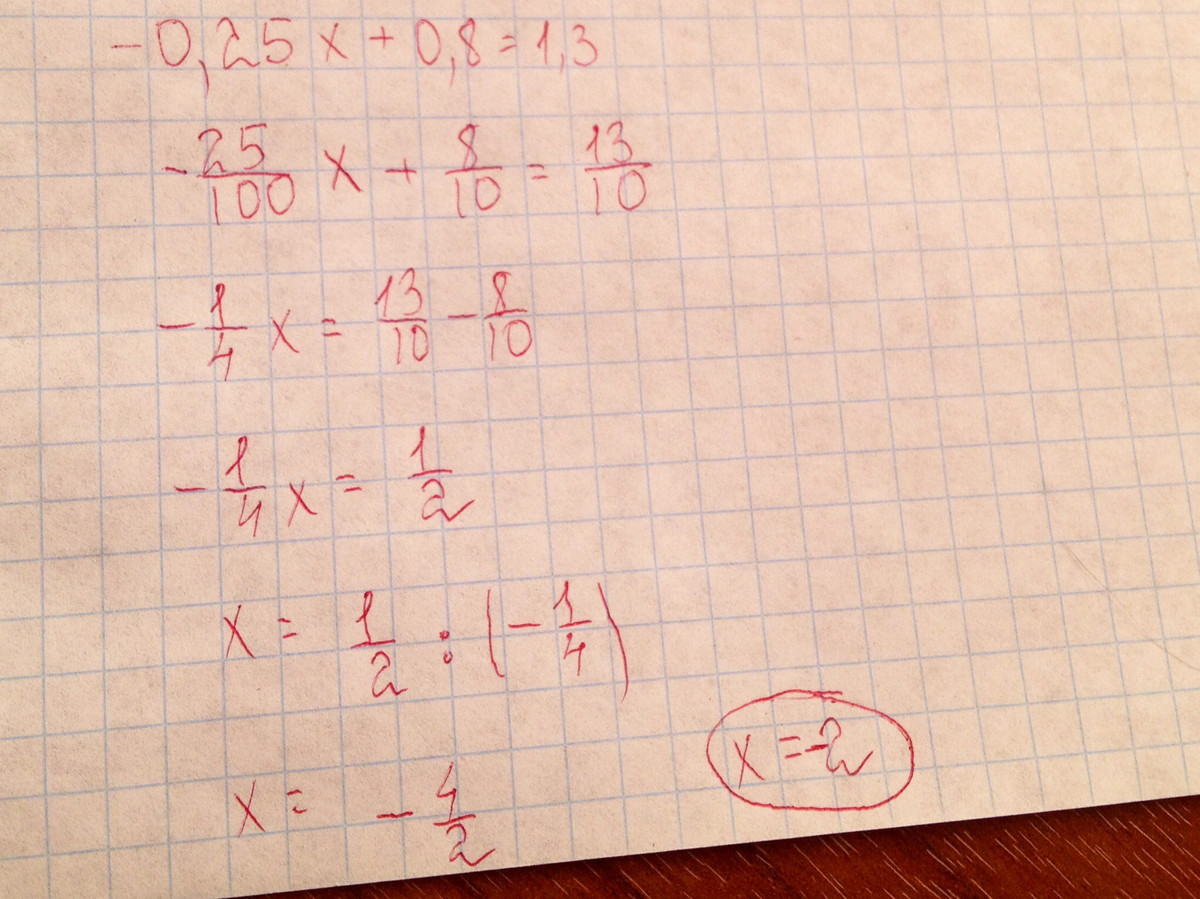 -0,25x + 0,8 = 1,3
-25/100 x + 8/10 = 13/10
-1/4 x = 13/10 - 8/10
-1/4 x = 1/2
x = 1/2 : (-1/4)
x = -4/2
x = -2